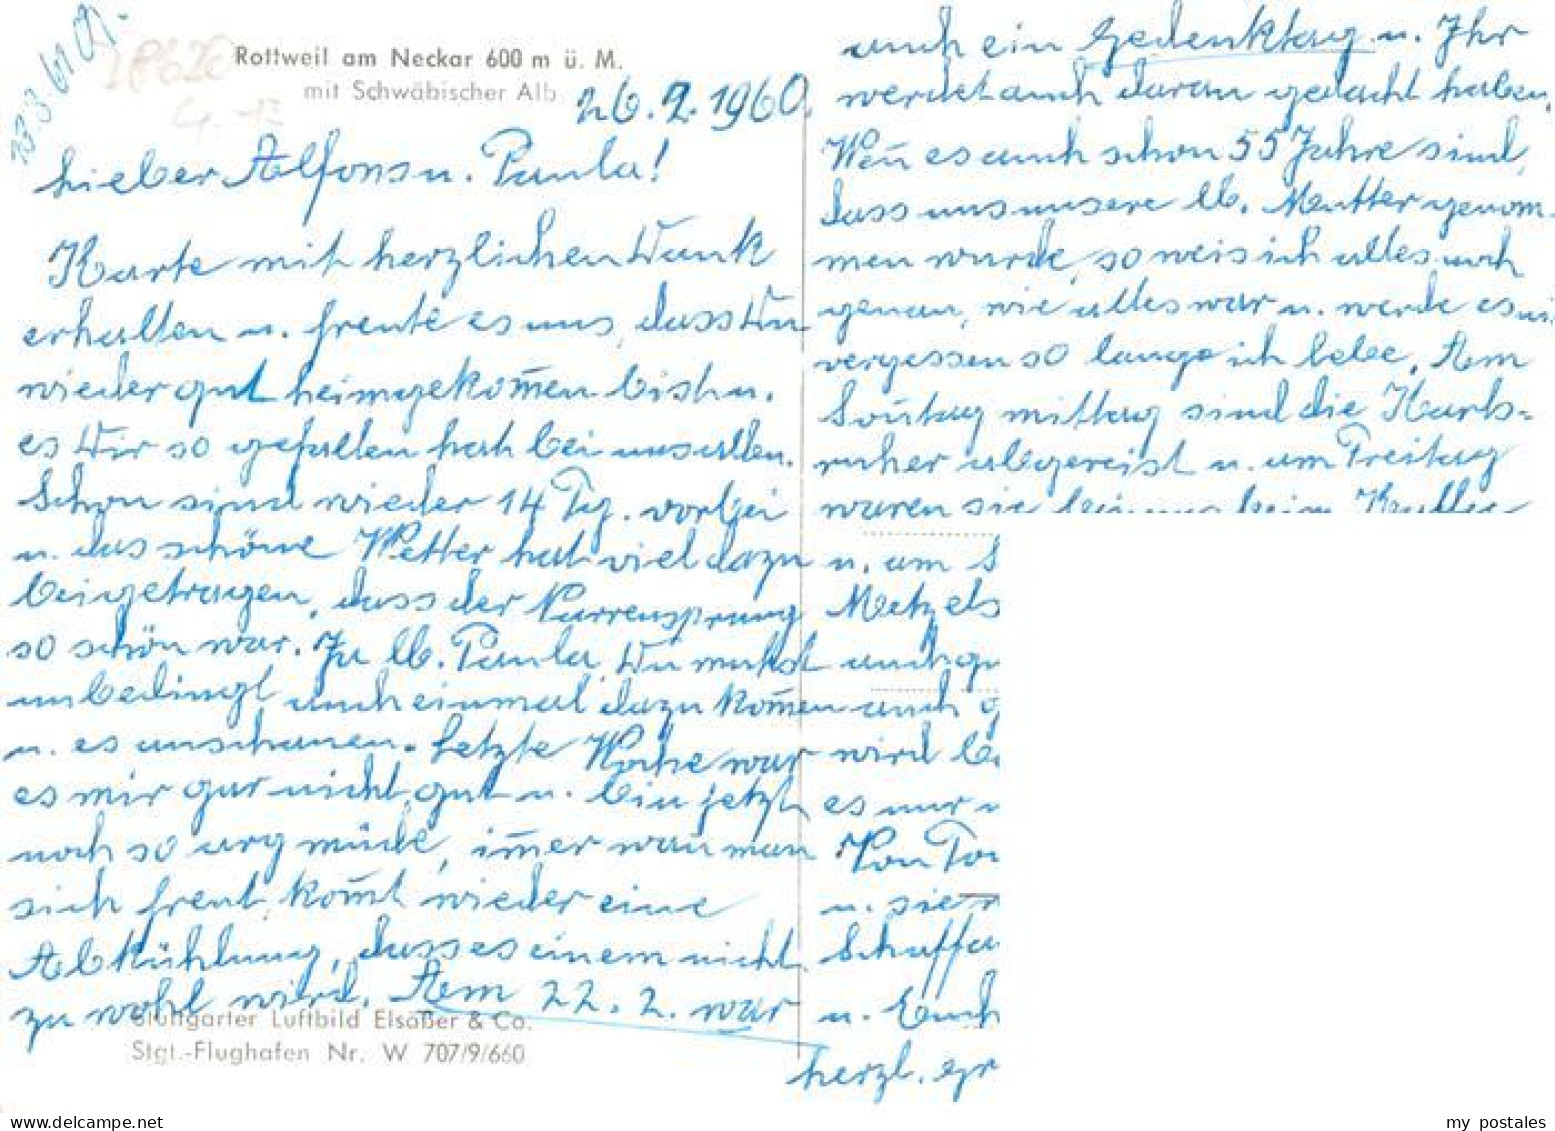 Rottweil am Neckar 600 m ü. M.
mit Schwäbischer Alb
26.2.1960.
Lieber Alfons u. Paula!
Karte mit herzlichen Dank
erhalten u. freute es uns, dass Du
wieder gut heimgekom̄en bist u.
es Dir so gefallen hat bei uns allen.
Schon sind wieder 14 Tg. vorbei
u. das schöne Wetter hat viel dazu
beigetragen, dass der Narrensprung
so schön war. Ja lb. Paula, Du mußt
unbedingt auch einmal dazu kom̄en
u. es anschauen. Letzte Woche war
es mir gar nicht gut u. bin jetzt
noch so arg müde, im̄er wan̄ man
sich freut, kom̄t wieder eine
Abkühlung, dass es einem nicht
zu wohl wird. Am 22.2. war
Stuttgarter Luftbild Elsäßer & Co.
Stgt.-Flughafen Nr. W 707/9/660
auch ein Gedenktag u. Ihr
werdet auch daran gedacht haben.
Wen̄ es auch schon 55 Jahre sind,
dass uns unsere lb. Mutter genom-
men wurde, so weis ich alles noch
genau, wie alles war u. werde es ni
vergessen so lange ich lebe. Am
Son̄tag mittag sind die Karls-
ruher abgereist u. am Freitag
waren sie bei uns beim Kaffee
u. am S
Metzels
auch gu
auch g
wird be
es nur
Von To
u. sie
Schaffa
u. Euch
herzl. gr
my postales